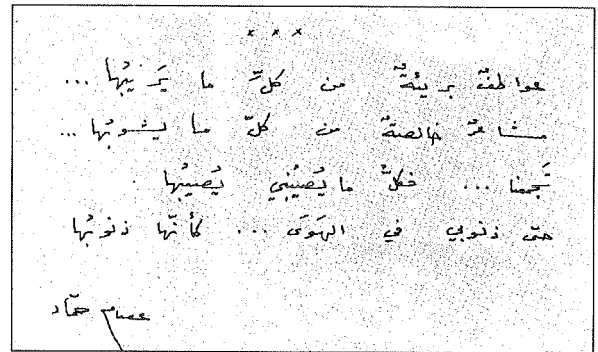 * * *
عواطفٌ بريئةٌ من كلِّ ما يَريبُها ...
مشاعرٌ خالصةٌ من كلّ ما يشوبُها ...
تَجمعنا ... فكلُّ ما يُصيبُني يُصيبُها
حتى ذنوبي في الهَوَى ... كأنّها ذنوبُها
عصام حمّاد